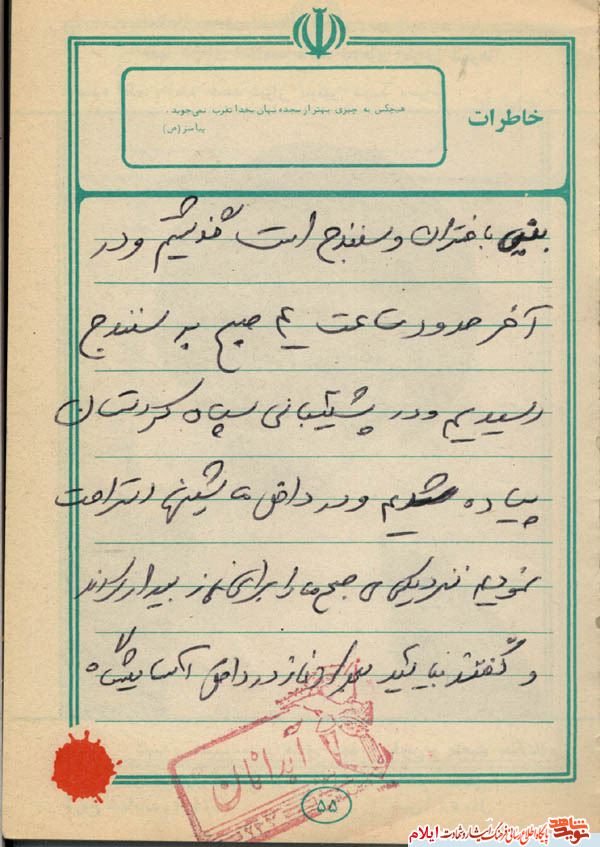 خاطرات
هیچکس به چیزی بهتر از سجده نهان بخدا تقرب نمی‌جوید.
پیامبر (ص)
باختران و سنندج است گذشتیم و در
آخر حدود ساعت ۴ صبح به سنندج
رسیدیم و در پشتیبانی سپاه کردستان
پیاده شدیم و در داخل ماشینها استراحت
نمودیم نزدیکی صبح ما را برای نماز بیدار
و گفتند بیایید برای نماز در داخل آسایشگاه
آبدانان
۵۵
نوید شاهد
پایگاه اطلاع رسانی فرهنگ ایثار و شهادت ایلام